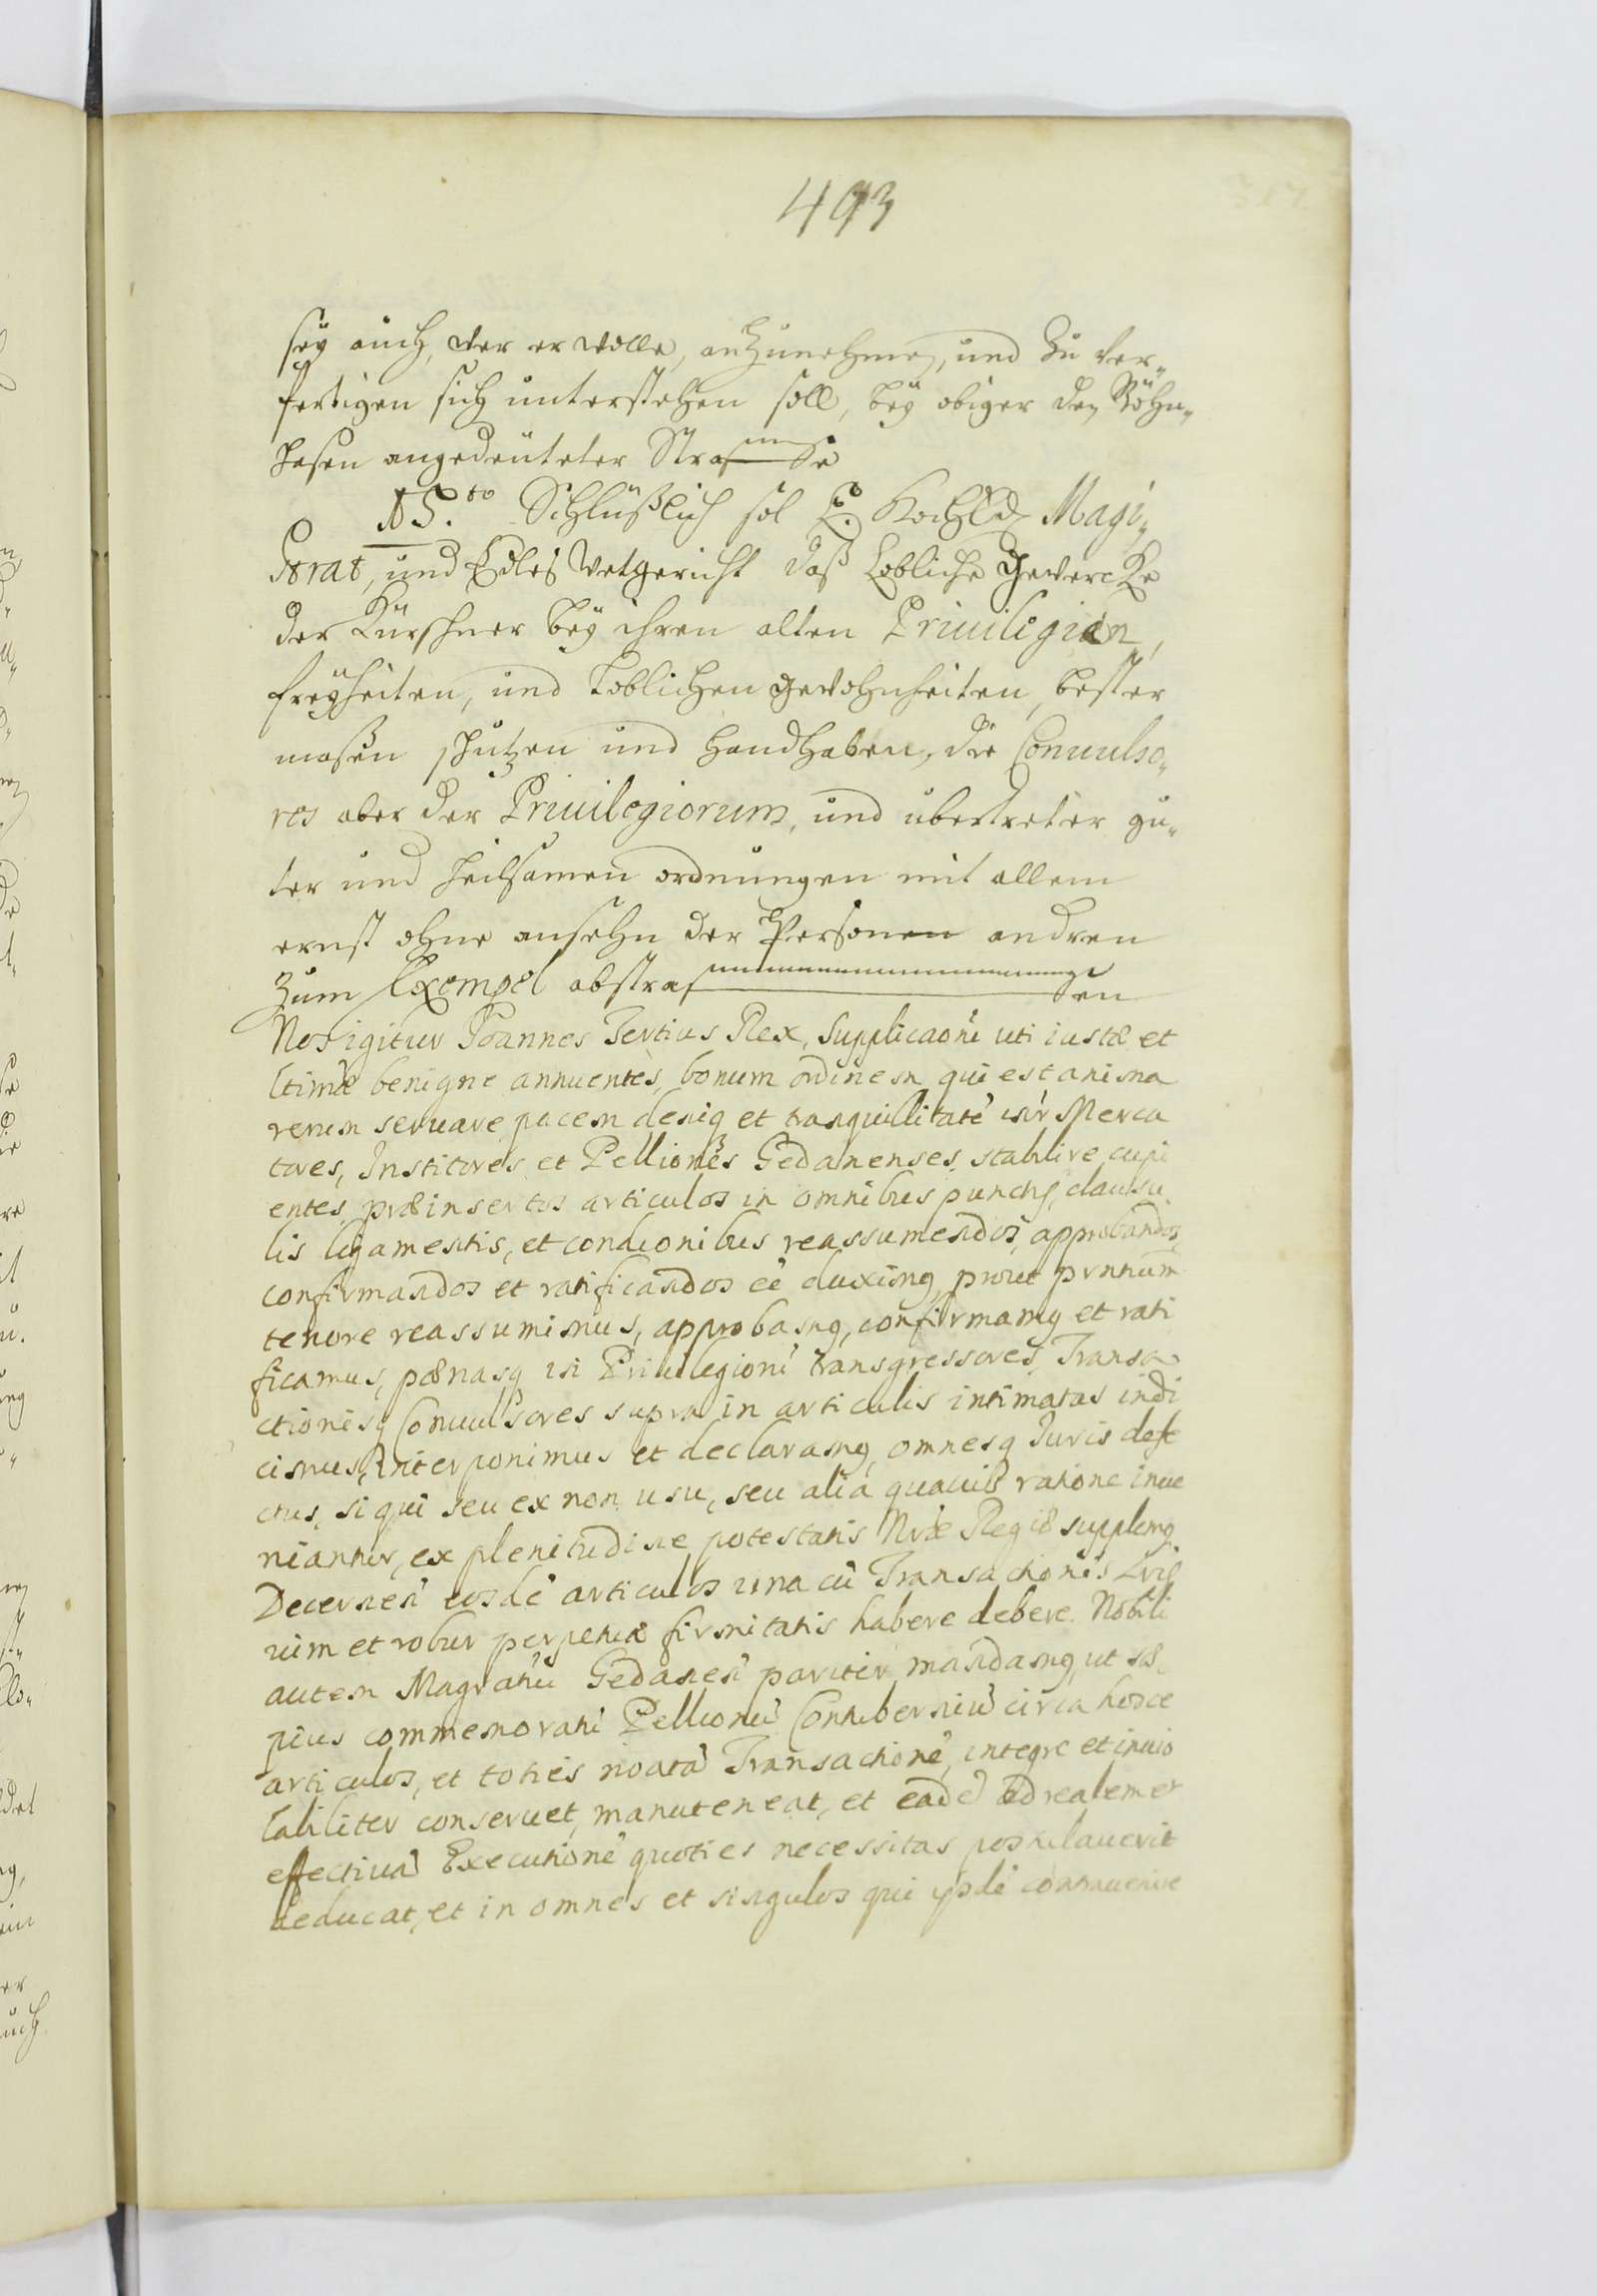 493
seÿ auch, wer er wolle, anzunehmen, und zu ver„
fertigen sich unterstehen soll, beÿ obiger den Böhn„
hasen angedeuteter Strafe
15.to Schlüßlich sol E. Hochld Magi„
strat, und Edles Wetgericht daß Lobliche Gewercke
der Kürschner beÿ ihren alten Priuilegien,
freÿheiten, und Loblichen gewohnheiten, bester
maßen schutzen und handhaben, die Conuulso„
res aber der Priuilegiorum, und ubertreter gu„
ter und heilsamen ordnungen mit allem
ernst ohne ansehn der Personen andren
zum Exempel abstrafen
Nos igitur Joannes Tertius Rex, Supplicaoni uti iustæ et
ltimæ benigne annuentes, bonum ordinem qui est anima
rerum seruare pacem deniq et tranquillitate inr Merca
tores, Institores et Pelliones Gedanenses stabilire cupi
entes, præinsertos articulos in omnibus punctis, clausu
lis ligamentis, et condionibus reassumendos, approbandos
confirmandos et ratificandos ee duximq, prout prntium
tenore reassumimus, approbamq, confirmamq et rati
ficamus, pænasq in Priuilegioru transgressores, Transa
ctionisq Conuulsores supra in articulis intimatas indi
cimus, interponimus et declaramq, omnesq Juris defe
ctus, si qui seu ex non usu, seu alia quauis ratione inue
niantur, ex plenitudine potestatis Nræ Regiæ supplemq
Decernen eosde articulos una cu Transactionis
uim et robur perpetuæ firmitatis habere debere. Nobili
autem Magratui Gedanen pariter mandamq, ut sæ
pius commemorati Pellionu Contuberniu circa hosce
articulos, et toties noata Transactione, integre et inuio
labiliter conseruet, manuteneat, et eade ad realem et
effectiua Executione quoties necessitas postulauerit
deducat, et in omnes et singulos qui ysde contrauenire